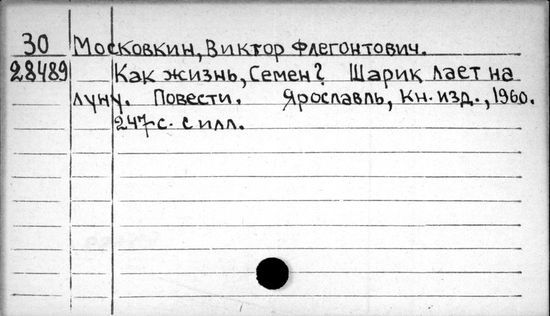 30 Московкин, Виктор Флегонтович.
28489 Как жизнь, Семен? Шарик лает на
луну. Повести. Ярославль, Кн. изд., 1960.
247 с. с илл.